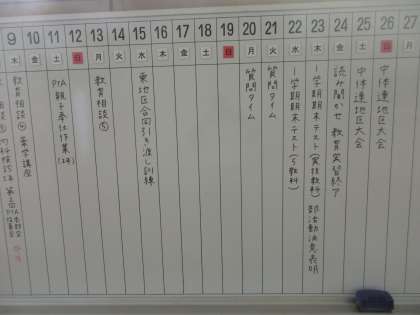 9 10 11 12 13 14 15 16 17 18 19 20 21 22 23 24 25 26 27
木 金 土 日 月 火 水 木 金 土 日 月 火 水 木 金 土 日 月
教育相談④
薬学講座
PTA親子奉仕作業(2年)
教育相談⑤
東地区合同引き渡し訓練
質問タイム
質問タイム
学期期末テスト(5教科)
1学期期末テスト(実技教科) 部活動決意表明
読み聞かせ 教育実習終了
中体連地区大会
中体連地区大会